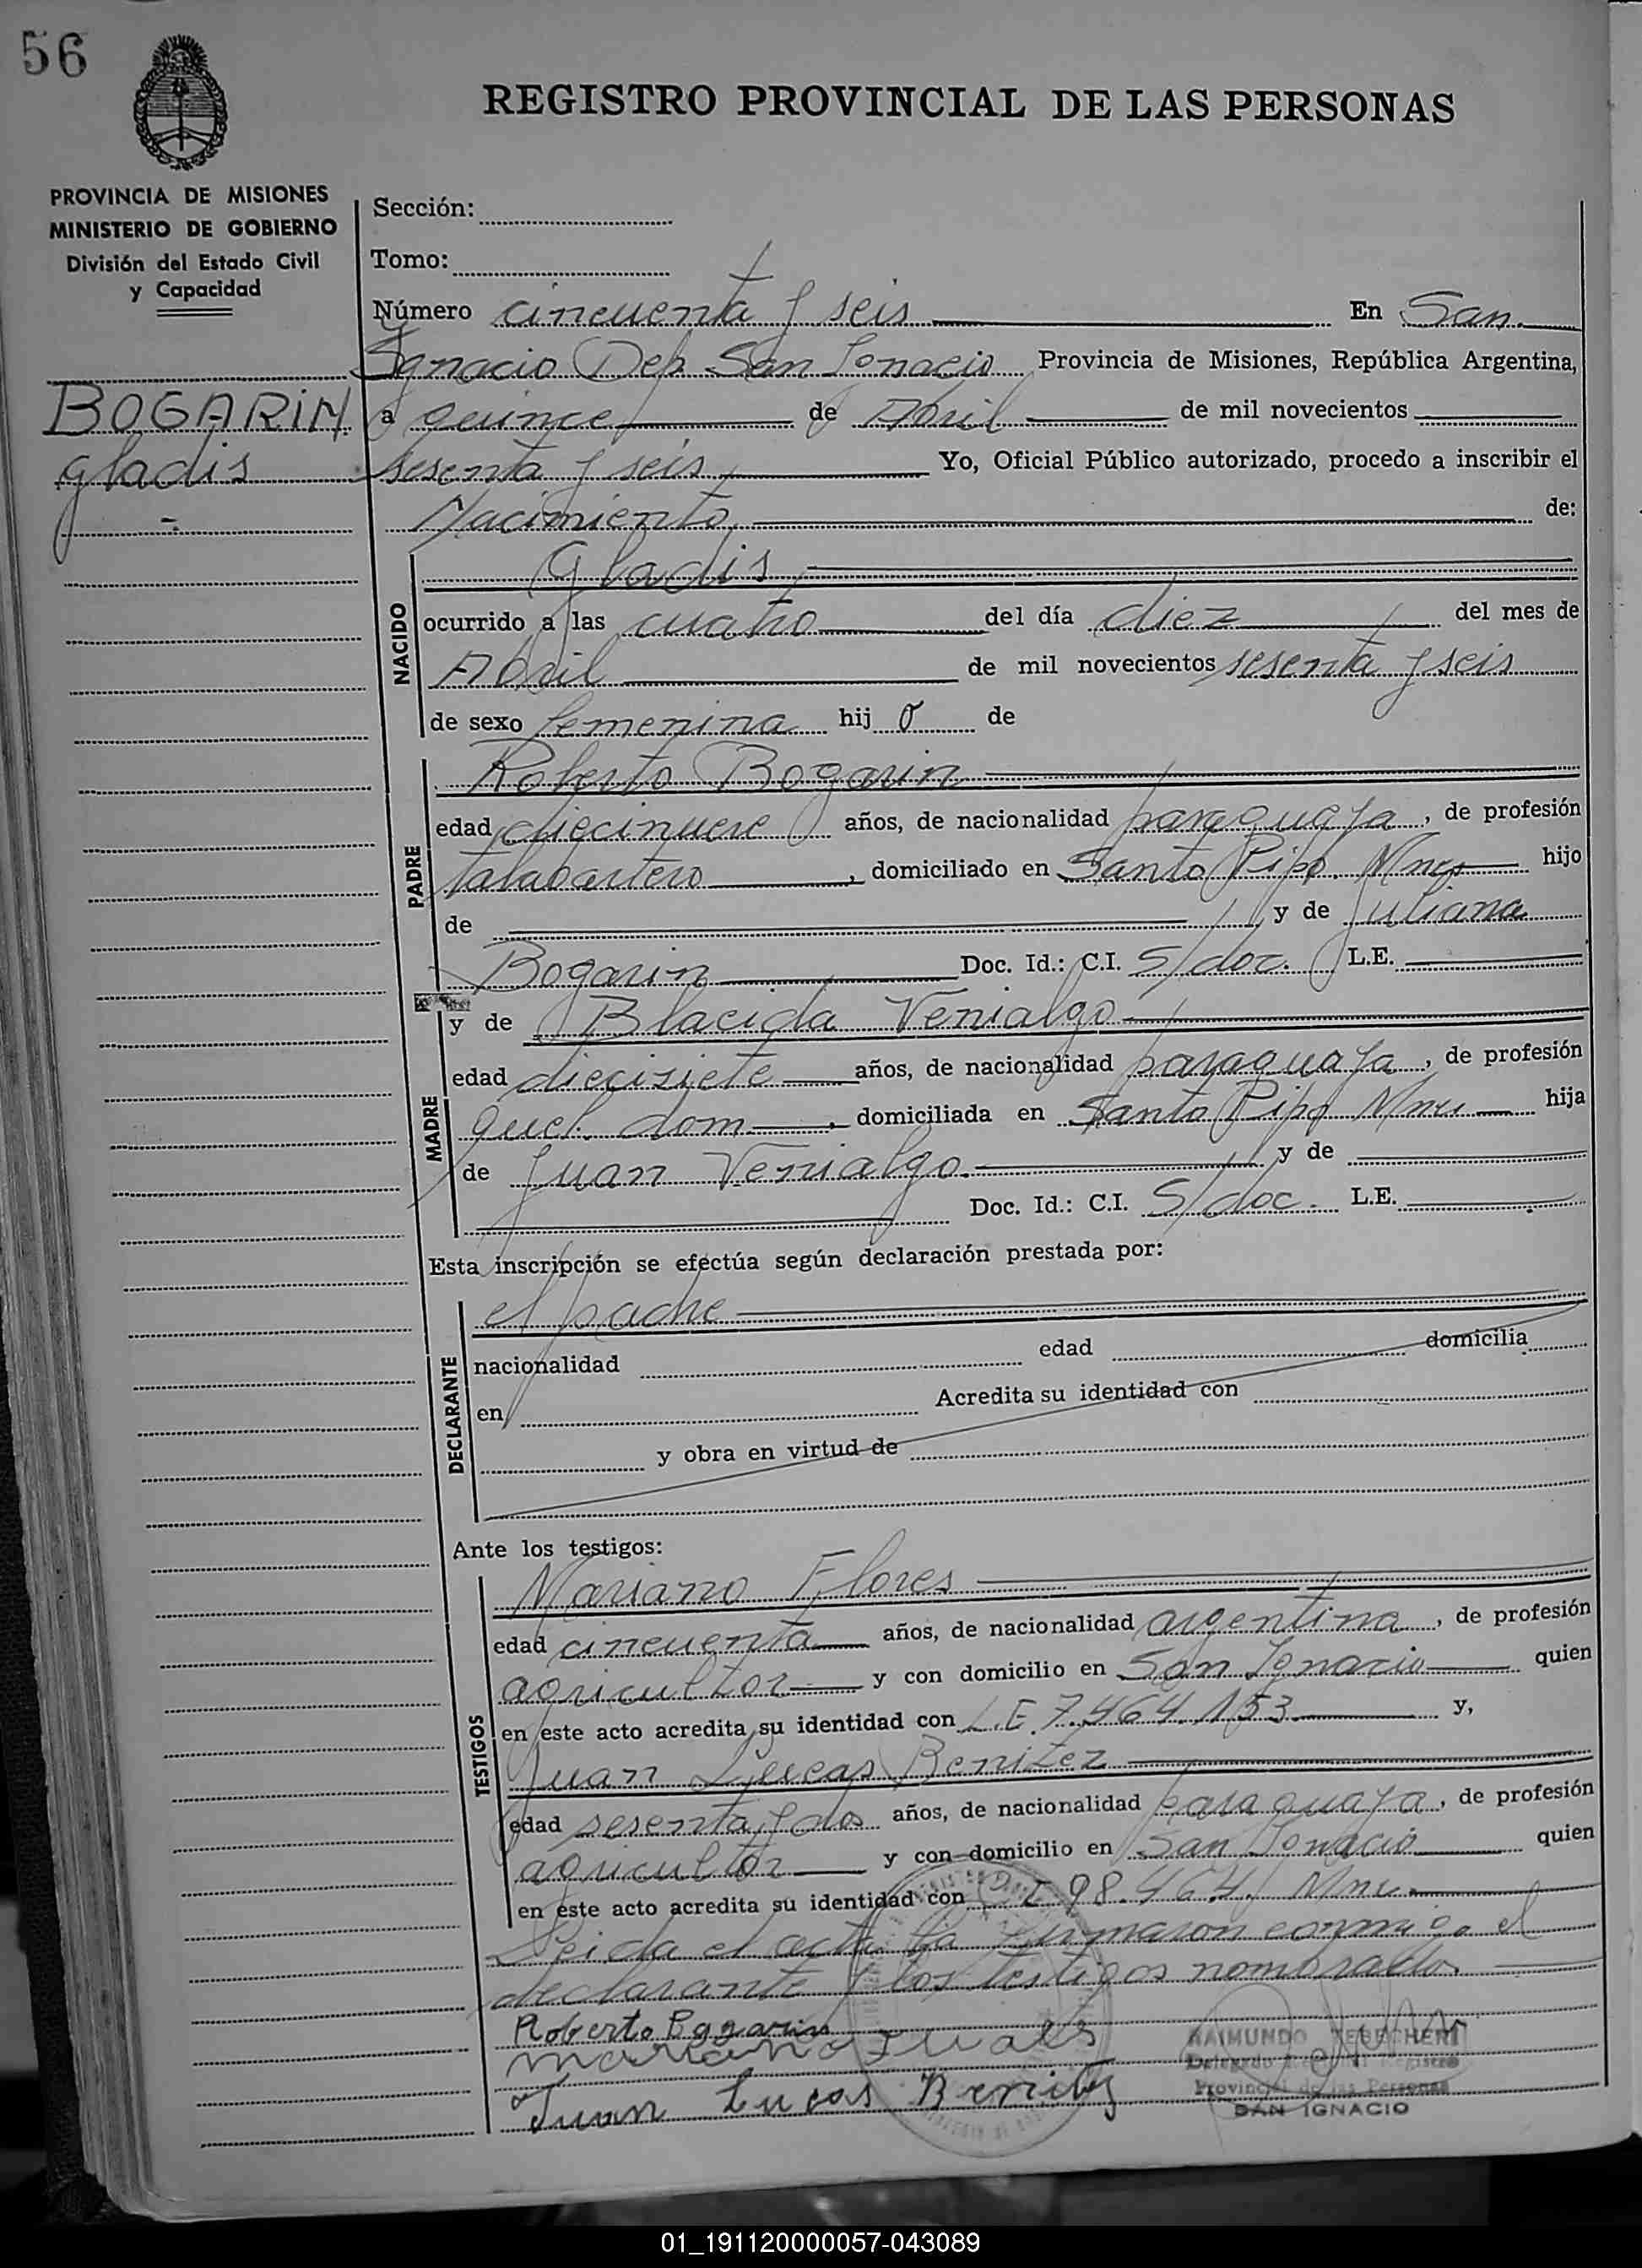 56
REGISTRO PROVINCIAL DE LAS PERSONAS
PROVINCIA DE MISIONES
MINISTERIO DE GOBIERNO
División del Estado Civil
y Capacidad
Sección:
Tomo:
Número cincuenta y seis En San
Ignacio Dep. San Ignacio Provincia de Misiones, República Argentina,
BOGARIN
Gladis
a quince de Abril de mil novecientos
sesenta y seis Yo, Oficial Público autorizado, procedo a inscribir el
Nacimiento de:
NACIDO
Gladis
ocurrido a las cuatro del día diez del mes de
Abril de mil novecientos sesenta y seis
de sexo femenina hij a de
PADRE
Roberto Bogarin
edad diecinueve años, de nacionalidad paraguaya, de profesión
talabartero, domiciliado en Santo Pipó. Mnes hijo
de y de Juliana
Bogarin Doc. Id.: C.I. S/doc. L.E.
MADRE
y de Blacida Venialgo
edad diecisiete años, de nacionalidad paraguaya, de profesión
queh. dom, domiciliada en Santo Pipó Mnes hija
de Juan Venialgo. y de
Doc. Id.: C.I. S/doc. L.E.
Esta inscripción se efectúa según declaración prestada por:
DECLARANTE
el padre
nacionalidad edad domicilia
en Acredita su identidad con
y obra en virtud de
Ante los testigos:
TESTIGOS
Mariano Flores
edad cincuenta años, de nacionalidad argentina, de profesión
agricultor y con domicilio en San Ignacio quien
en este acto acredita su identidad con L.E. 7.464.153 y,
Juan Lucas Benitez
edad sesenta y dos años, de nacionalidad paraguaya, de profesión
agricultor y con domicilio en San Ignacio quien
en este acto acredita su identidad con 98.464 Mnes
Leida el acta la firmaron conmigo el
declarante y los testigos nombrados
Roberto Bogarin
mariano
Juan Lucas Benitez
RAIMUNDO
Delegado Registro
Provincial de las Personas
SAN IGNACIO
01_191120000057-043089